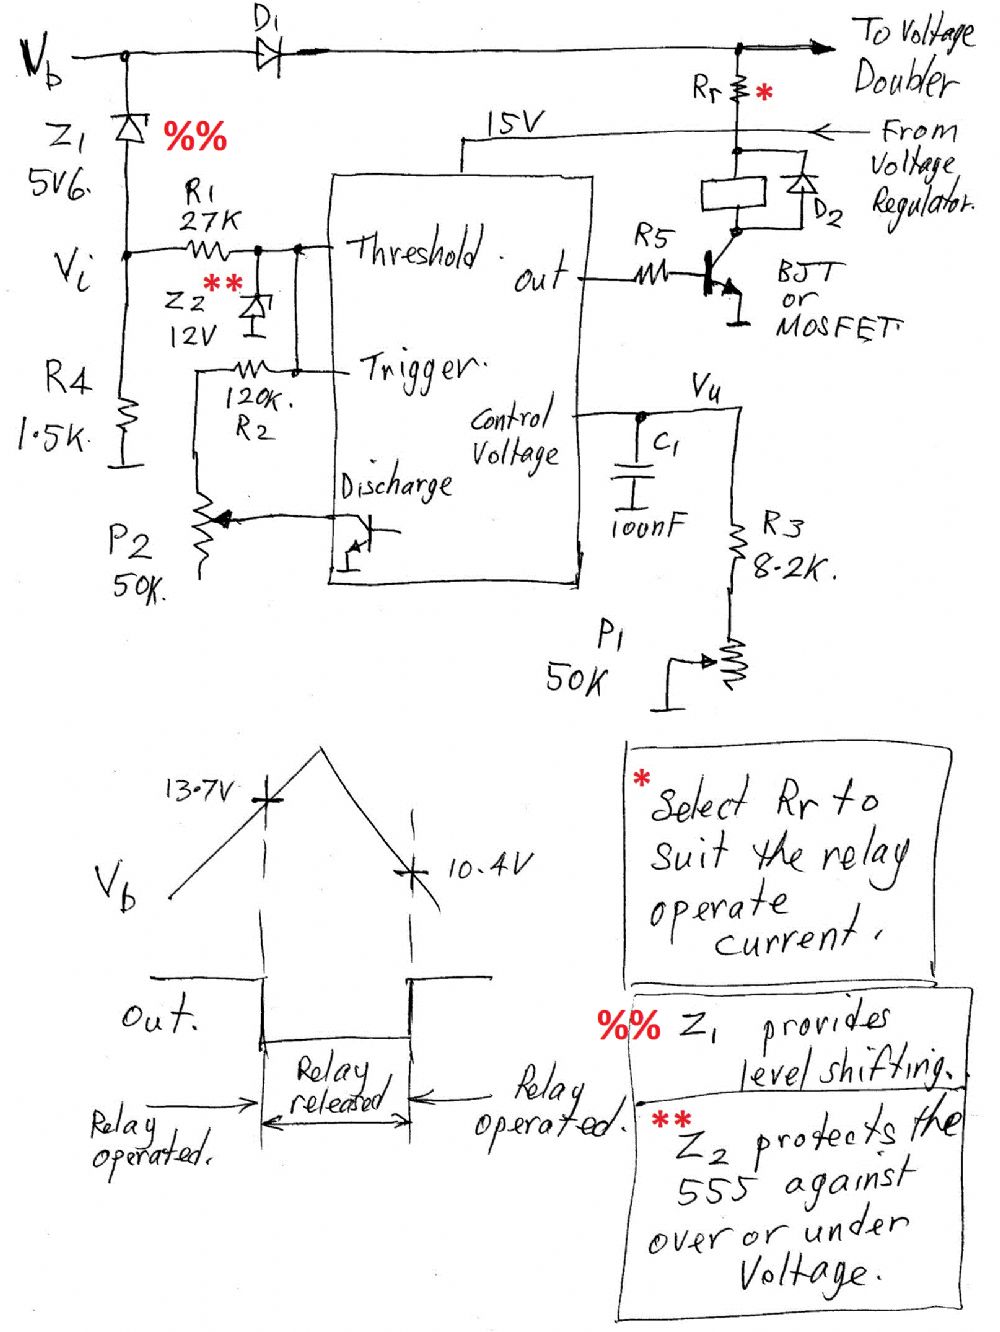 D1
Vb
To Voltage
Doubler
Rr *
15V
From
Voltage
Regulator.
Z1 %%
5V6.
R1
27K
Vi
**
Z2
12V
Threshold
Out
R5
D2
BJT
or
MOSFET
Trigger.
120K.
R2
R4
1.5K
Control
Voltage
Vu
C1
100nF
Discharge
P2
50K.
R3
8.2K.
P1
50K
13.7V
Vb
10.4V
Out.
Relay
released
Relay
operated.
Relay
operated.
*
Select Rr to
suit the relay
operate
current.
%% Z1 provides
level shifting.
**
Z2 protects the
555 against
over or under
Voltage.